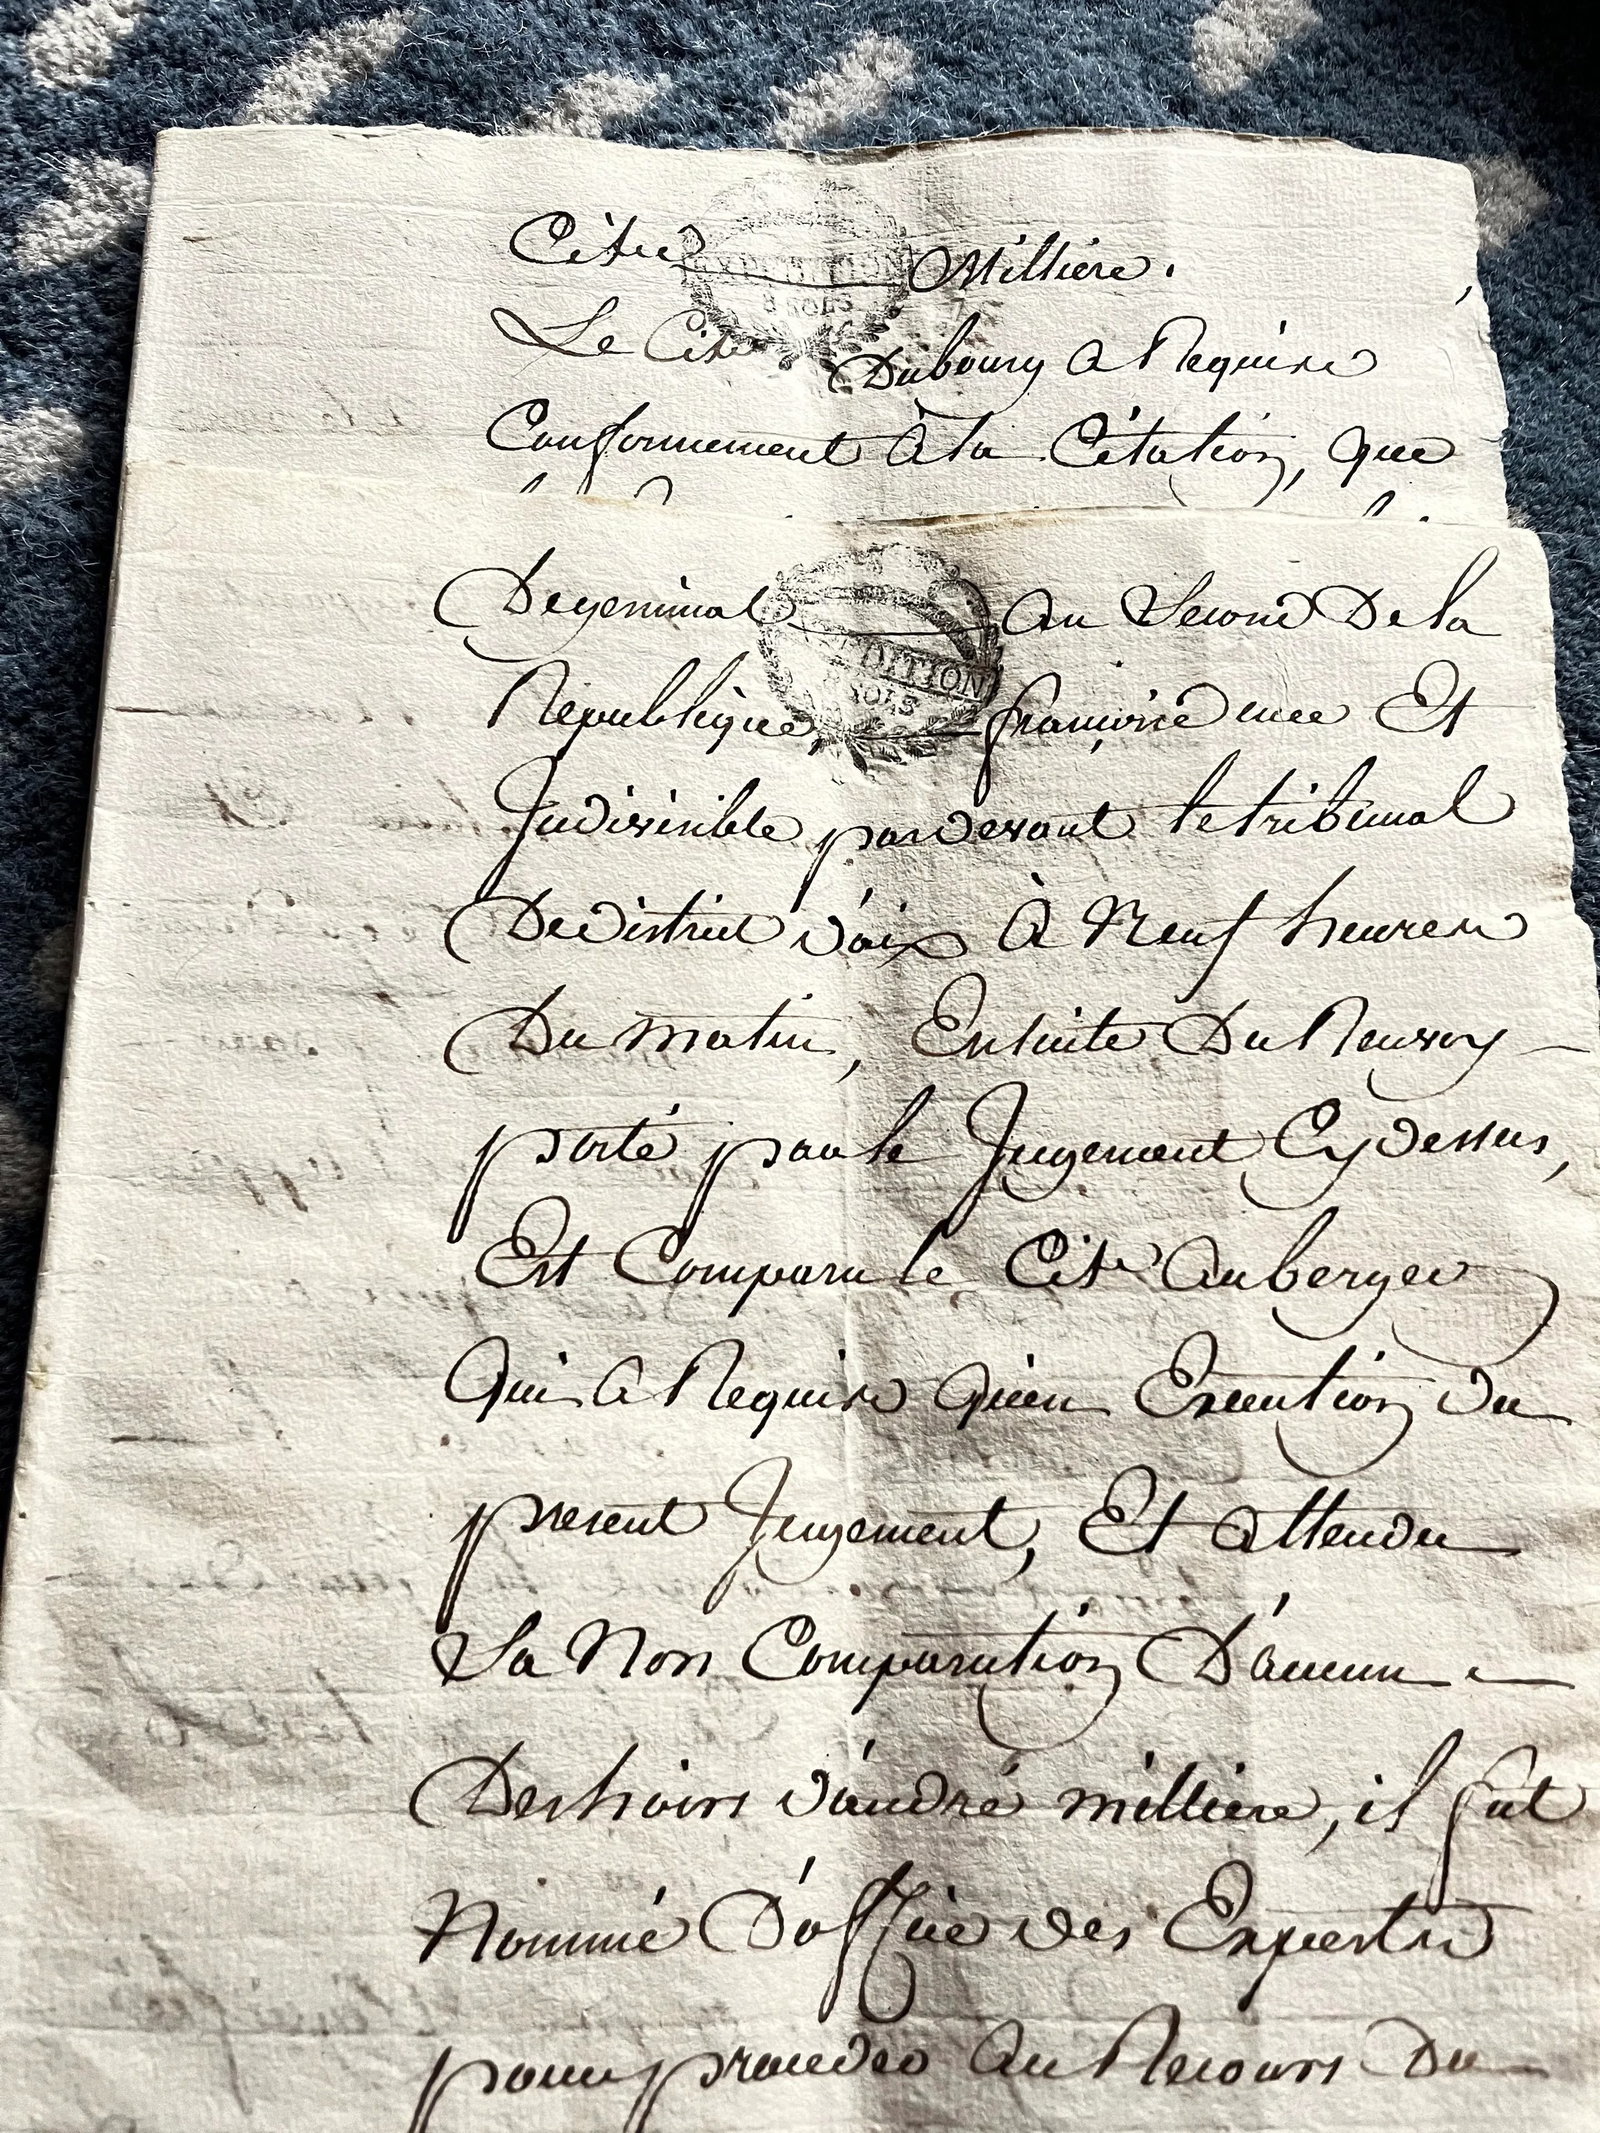 Citn Milliere.
EXPEDITION
8 SOLS
Le Citn Dubourg a Requis
Conformement à la Citation, que
De germinal an second de la
EDITION
SOLS
Republique françoise une Et
Indivisible pardevant le tribunal
De district d'aix à neuf heures
Du matin, Ensuite Du Renvoy
porté par le Jugement Cy dessus,
Est Comparu le Citn Auberger
Qui a Requis qu'en Execution du
present Jugement, Et attendu
La Non Comparution D'aucun
Des hoirs d'andré milliere, il fut
Nommé D'office des Experts
pour proceder au Recours Du